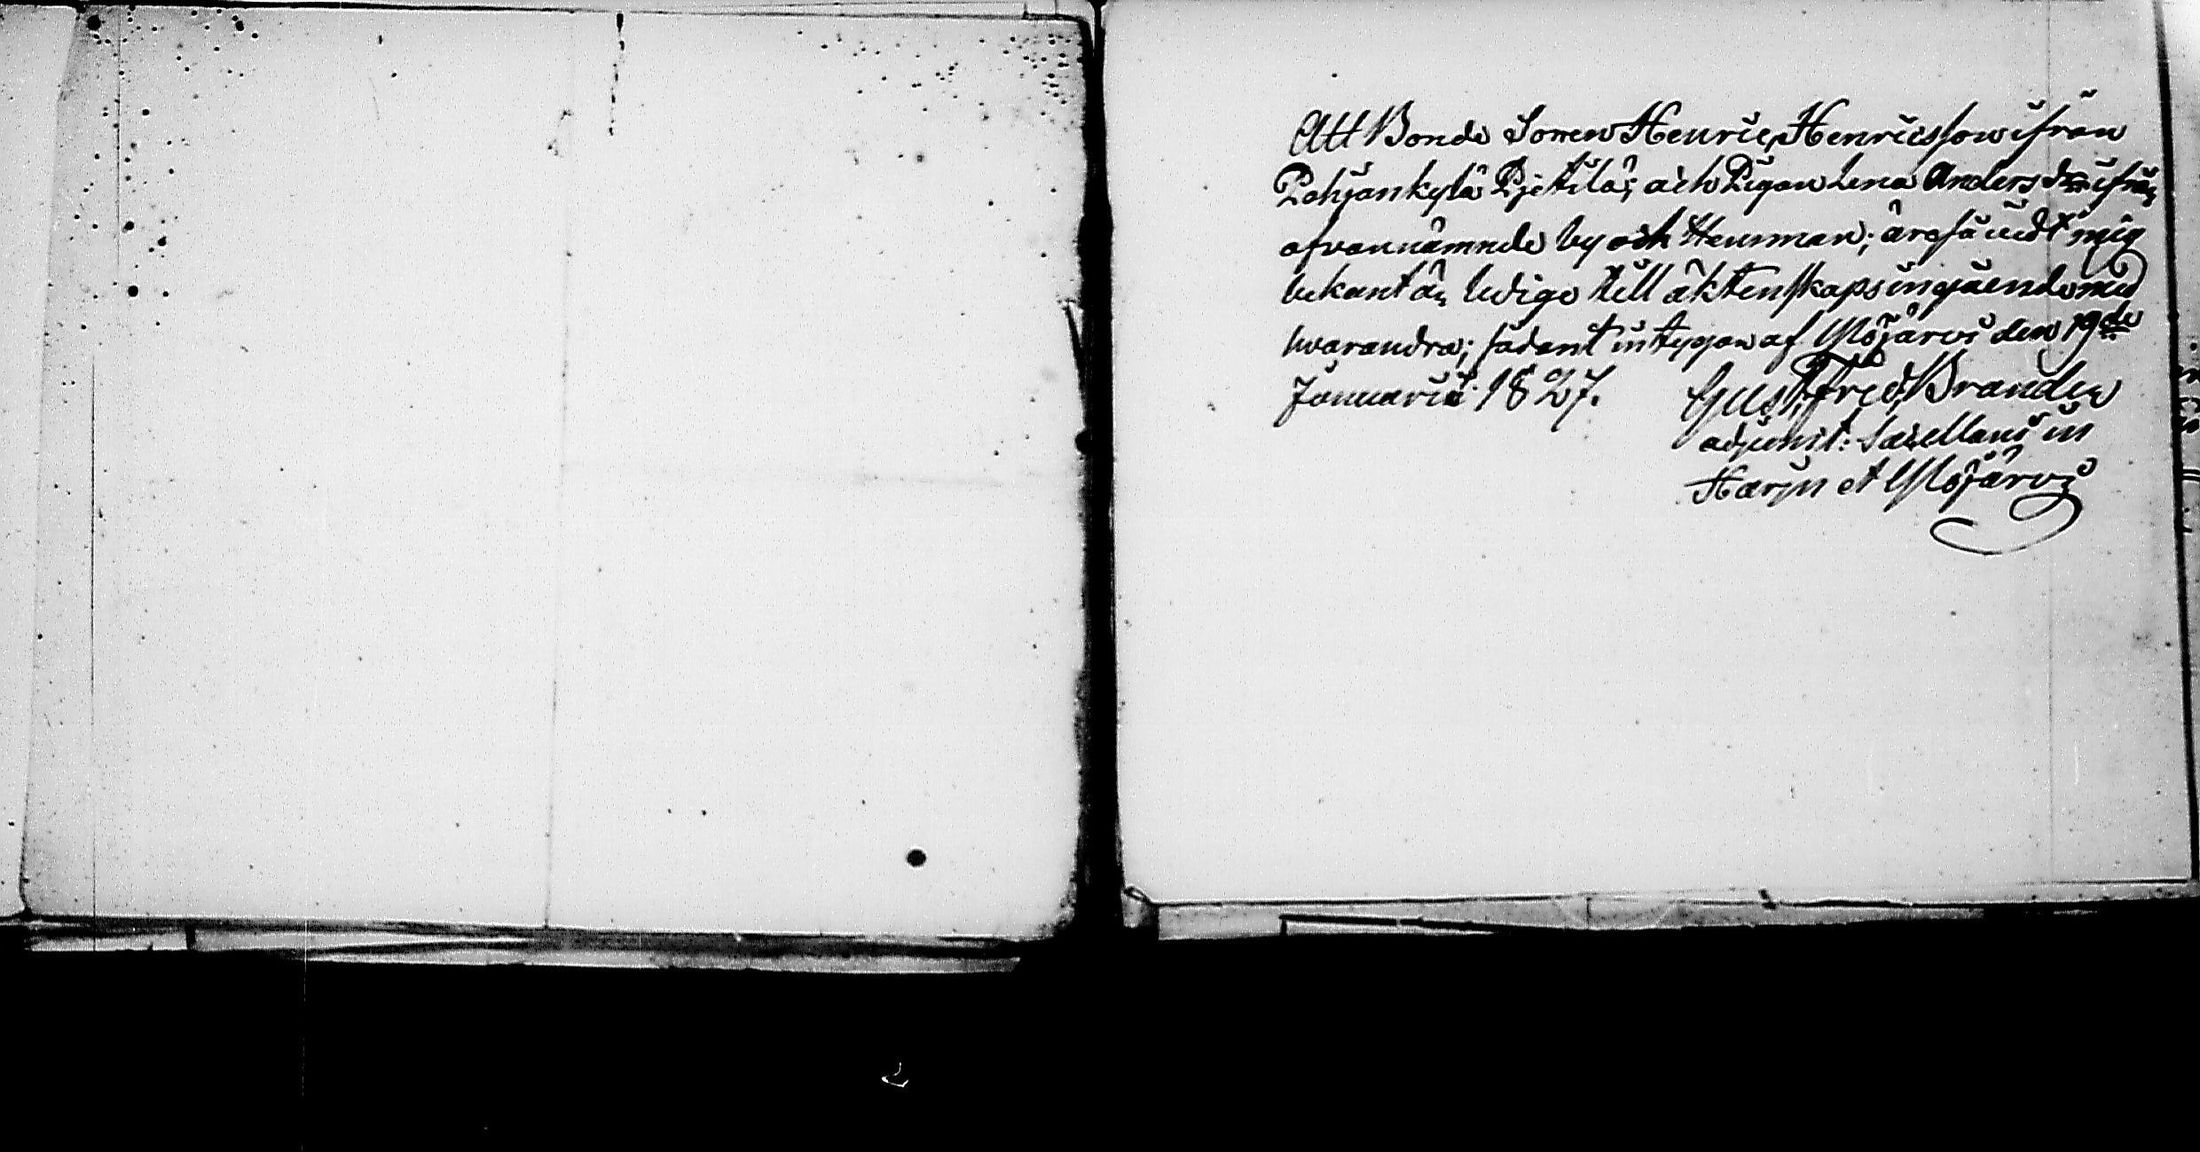 Att Bonde Sonen Henric Henricsson ifrån
Pohjankylä Pjetilä; och Pigan Lena Anders dr ifrån
ofvannämnde by och Hemman; äro så vidt mig
bekant är, ledige till äktenskaps ingående med
hvarandra; sådant intygar af Ylöjärvi den 19de
Januarii 1827. Gust. Fred. Brander
adjunct: Sacellani in
Harju et Ylöjärvi